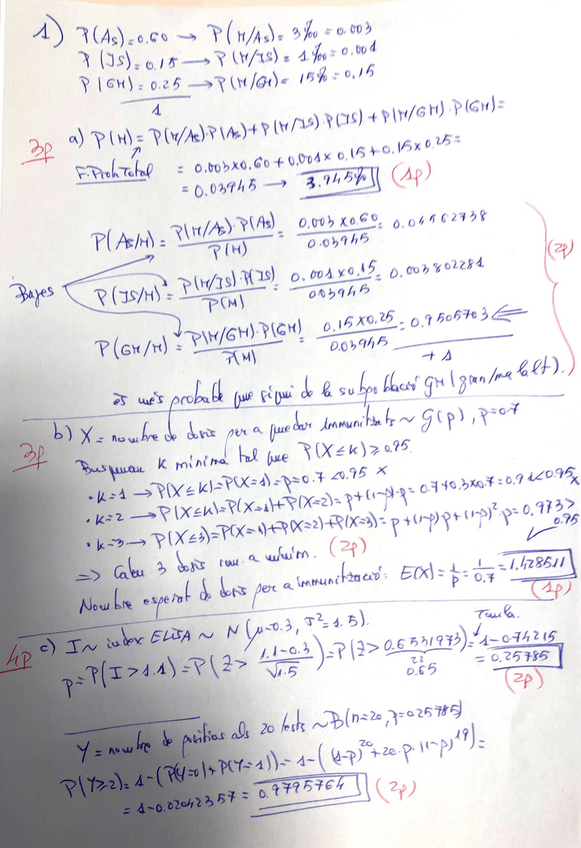 1) P(As)=0.60 → P(M/As)= 3‰ = 0.003
P(IS)=0.15 → P(M/IS)= 1‰ = 0.001
P(GM)=0.25 → P(M/GM)= 15% = 0.15
1
3p a) P(M)= P(M/As)·P(As)+P(M/IS)·P(IS)+P(M/GM)·P(GM)=
F. Prob Total = 0.003x0.60+0.001x0.15+0.15x0.25=
= 0.03945 → 3.945% (1p)
P(As/M)= P(M/As)·P(As) / P(M) = 0.003x0.60 / 0.03945 = 0.04562738
Bayes P(IS/M)= P(M/IS)·P(IS) / P(M) = 0.001x0.15 / 0.03945 = 0.003802281 (2p)
P(GM/M)= P(M/GM)·P(GM) / P(M) = 0.15x0.25 / 0.03945 = 0.9505703 ⇐
+ 1
és més probable que sigui de la subpoblació GM (gran/malalt).
3p b) X = nombre de dosis per a quedar immunitzats ~ G(p), p=0.7
Busquem k mínima tal que P(X≤k) ≥ 0.95.
· k=1 → P(X≤k)=P(X=1)=p=0.7 <0.95 x
· k=2 → P(X≤k)=P(X=1)+P(X=2)=p+(1-p)·p=0.7+0.3x0.7=0.91<0.95 x
· k=3 → P(X≤3)=P(X=1)+P(X=2)+P(X=3)=p+(1-p)p+(1-p)²·p=0.973>
0.95 ✓
⇒ Calen 3 dosis com a mínim. (2p)
Nombre esperat de dosis per a immunització: E(X)= 1/p = 1/0.7 = 1.428511
(1p)
4p c) I ~ index ELISA ~ N(μ=0.3, σ²=1.5). Taula.
p=P(I>1.1)=P(Z> 1.1-0.3 / √1.5)=P(Z>0.6531973)= 1-0.74215
≈ 0.65 = 0.25785
(2p)
Y = nombre de positius als 20 tests ~B(n=20, p=0.25785)
P(Y≥2)= 1-(P(Y=0)+P(Y=1))= 1-((1-p)²⁰+20·p·(1-p)¹⁹)=
= 1-0.02042357 = 0.9795764 (2p)